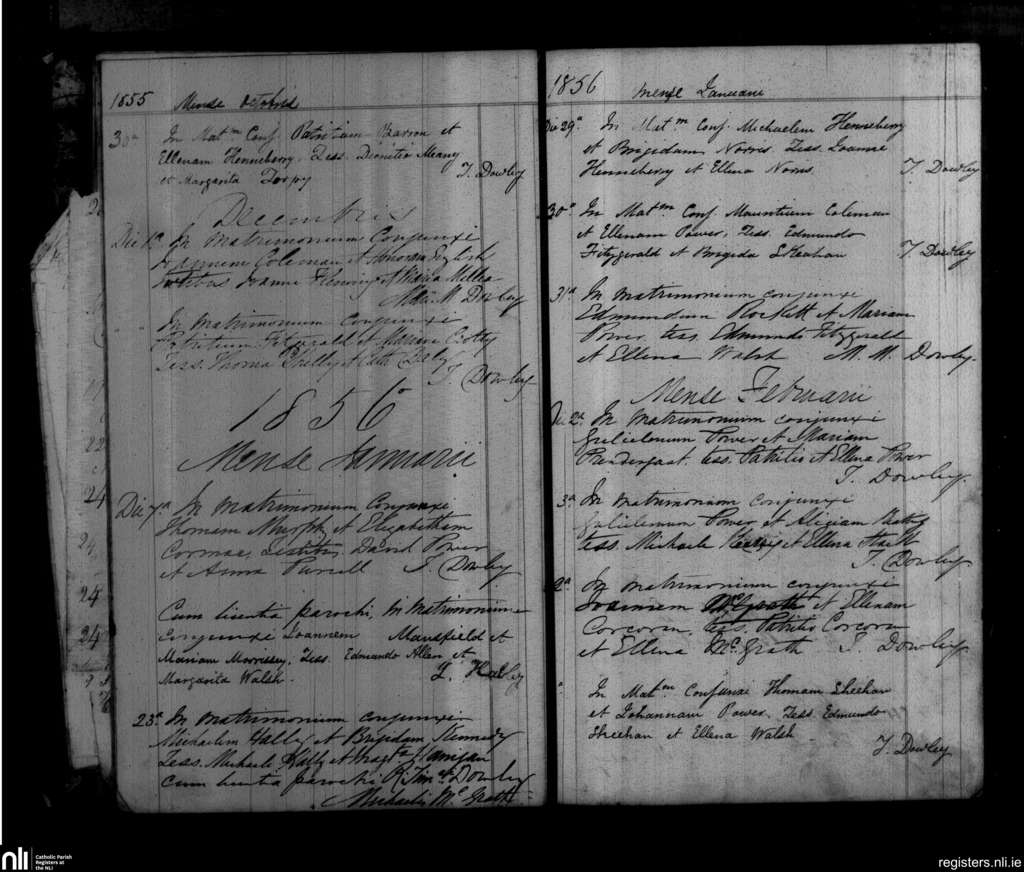 1855 Mense Octobris
30a In Matm Conj Patritium Barron et
Ellenam Henneberry. Tess. Dionitio Meany
et Margarita Torpy T. Dowley
Decembris
Die 1a In Matrimonium Conjunxi
Joannem Coleman et Honoram English
Joanne Fleming et Maria
M. Dowley
In Matrimonium Conjunxi
Patritium Fitzgerald et Mariam Crotty
Tess. Thoma et Cath Daly
T. Dowley
1856
Mense Januarii
Die 7a In Matrimonium Conjunxi
Thomam Murphy et Elizabetham
David Power
et Anna Purcell T. Dowley
Cum licentia parochi, In Matrimonium
Conjunxi Joannem Mansfield et
Mariam Morrissey, Tess. Edmundo Allen et
Margarita Walsh
23a In Matrimonium conjunxi
Michaelem Hally et Brigidam Kennedy
Tess. Michaele Hally et Margta
cum licentia parochi R. Timei Dowley
Michaelis McGrath
1856 Mense Januarii
Die 29a In Matm Conj Michaelem Henneberry
et Brigidam Norris Tess. Joanne
Henneberry et Ellena Norris T. Dowley
30a In Matm Conj Mauritium Coleman
et Ellenam Power, Tess. Edmundo
Fitzgerald et Brigida Sheahan T. Dowley
31a In Matrimonium conjunxi
Edmundum Rockett et Mariam
Power tess Edmundo Fitzgerald
et Ellena Walsh M. M. Dowley.
Mense Februarii
Die 2a In Matrimonium conjunxi
Gulielmum Power et Mariam
Prenderfast. tess. Patritio et Ellena Power
T. Dowley.
3a In matrimonium conjunxi
Gulielmum Power et
tess. Michaele et Ellena
T. Dowley
2a In matrimonium conjunxi
Joannem McGrath et Ellenam
Corcoran, tess. Patritio Corcoran
et Ellena McGrath T. Dowley
In Matm Conjunxi Thomam Sheehan
et Johannam Power. Tess Edmundo
Sheehan et Ellena Walsh
T. Dowley
nli Catholic Parish
Registers at
the NLI
registers.nli.ie